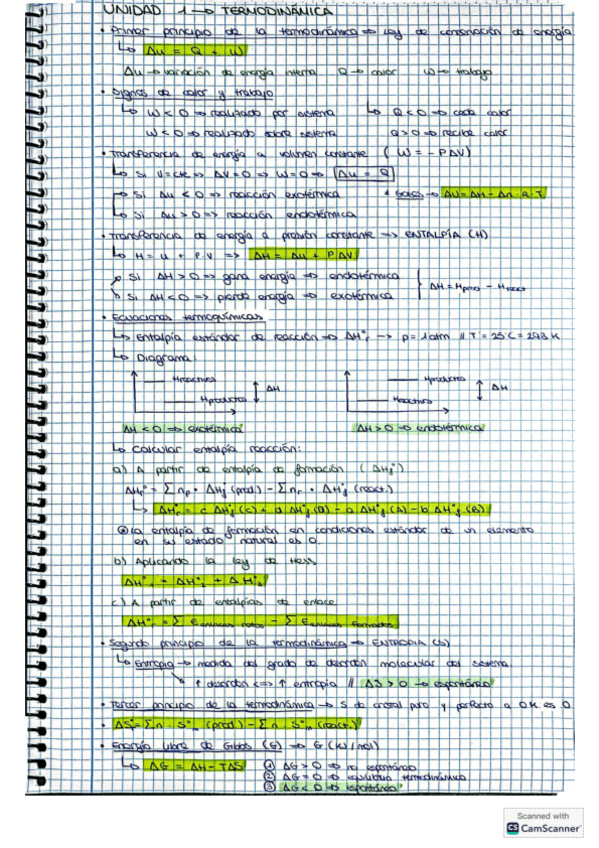 UNIDAD 1 → TERMODINÁMICA
• Primer principio de la termodinámica ⇒ Ley de conservación de energía
↳ Δu = Q + W
Δu → variación de energía interna Q → calor W → trabajo
• Signos de calor y trabajo
↳ W < 0 ⇒ realizado por sistema ↳ Q < 0 ⇒ cede calor
W < 0 ⇒ realizado sobre sistema Q > 0 ⇒ recibe calor
• Transferencia de energía a volumen constante (W = - PΔV)
↳ Si V = cte ⇒ ΔV = 0 ⇒ W = 0 ⇒ Δu = Q
↳ Si Δu < 0 ⇒ reacción exotérmica * Gases → ΔU = ΔH - Δn · R · T
↳ Si Δu > 0 ⇒ reacción endotérmica
• Transferencia de energía a presión constante ⇒ ENTALPÍA (H)
↳ H = u + P · V ⇒ ΔH = Δu + PΔV
Si ΔH > 0 ⇒ gana energía ⇒ endotérmica
ΔH = Hprod - Hreact
Si ΔH < 0 ⇒ pierde energía ⇒ exotérmica
• Ecuaciones termoquímicas
↳ Entalpía estándar de reacción ⇒ ΔH°r → p = 1 atm // T = 25°C = 293 K
↳ Diagrama:
Hreactivos ΔH Hproductos ΔH
Hproductos Hreactivos
ΔH < 0 ⇒ exotérmica ΔH > 0 ⇒ endotérmica
↳ Calcular entalpía reacción:
a) A partir de entalpía de formación (ΔH°f)
ΔH°r = Σ np · ΔH°f (prod) - Σ nr · ΔH°f (react.)
↳ ΔH°r = c ΔH°f (C) + d ΔH°f (D) - a ΔH°f (A) - b ΔH°f (B)
La entalpía de formación en condiciones estándar de un elemento
en su estado natural es 0.
b) Aplicando la ley de Hess
ΔH°r = ΔH°1 + ΔH°2
c) A partir de entalpías de enlace
ΔH°r = Σ Eenlaces rotos - Σ Eenlaces formados
• Segundo principio de la termodinámica → ENTROPÍA (S)
↳ Entropía → medida del grado de desorden molecular del sistema
↑ desorden <=> ↑ entropía // ΔS > 0 → espontáneo
• Tercer principio de la termodinámica → S de cristal puro y perfecto a 0 K es 0
• ΔS° = Σn · S°m (prod.) - Σn · S°m (react.)
• Energía libre de Gibbs (G) ⇒ G (KJ/mol)
↳ ΔG = ΔH - TΔS ① ΔG > 0 ⇒ no espontáneo
② ΔG = 0 ⇒ equilibrio termodinámico
③ ΔG < 0 ⇒ espontáneo
Scanned with
CS CamScanner